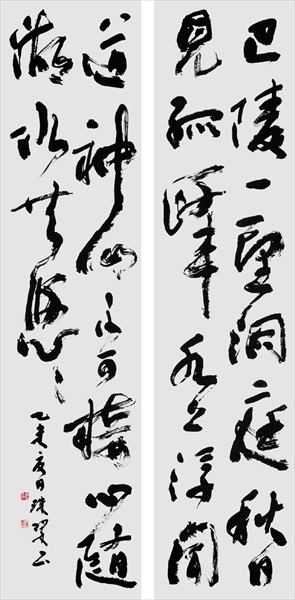 巴陵一望洞庭秋日
見孤峰水上浮聞
道神仙不可接心隨
湖水共悠々
乙未夏日